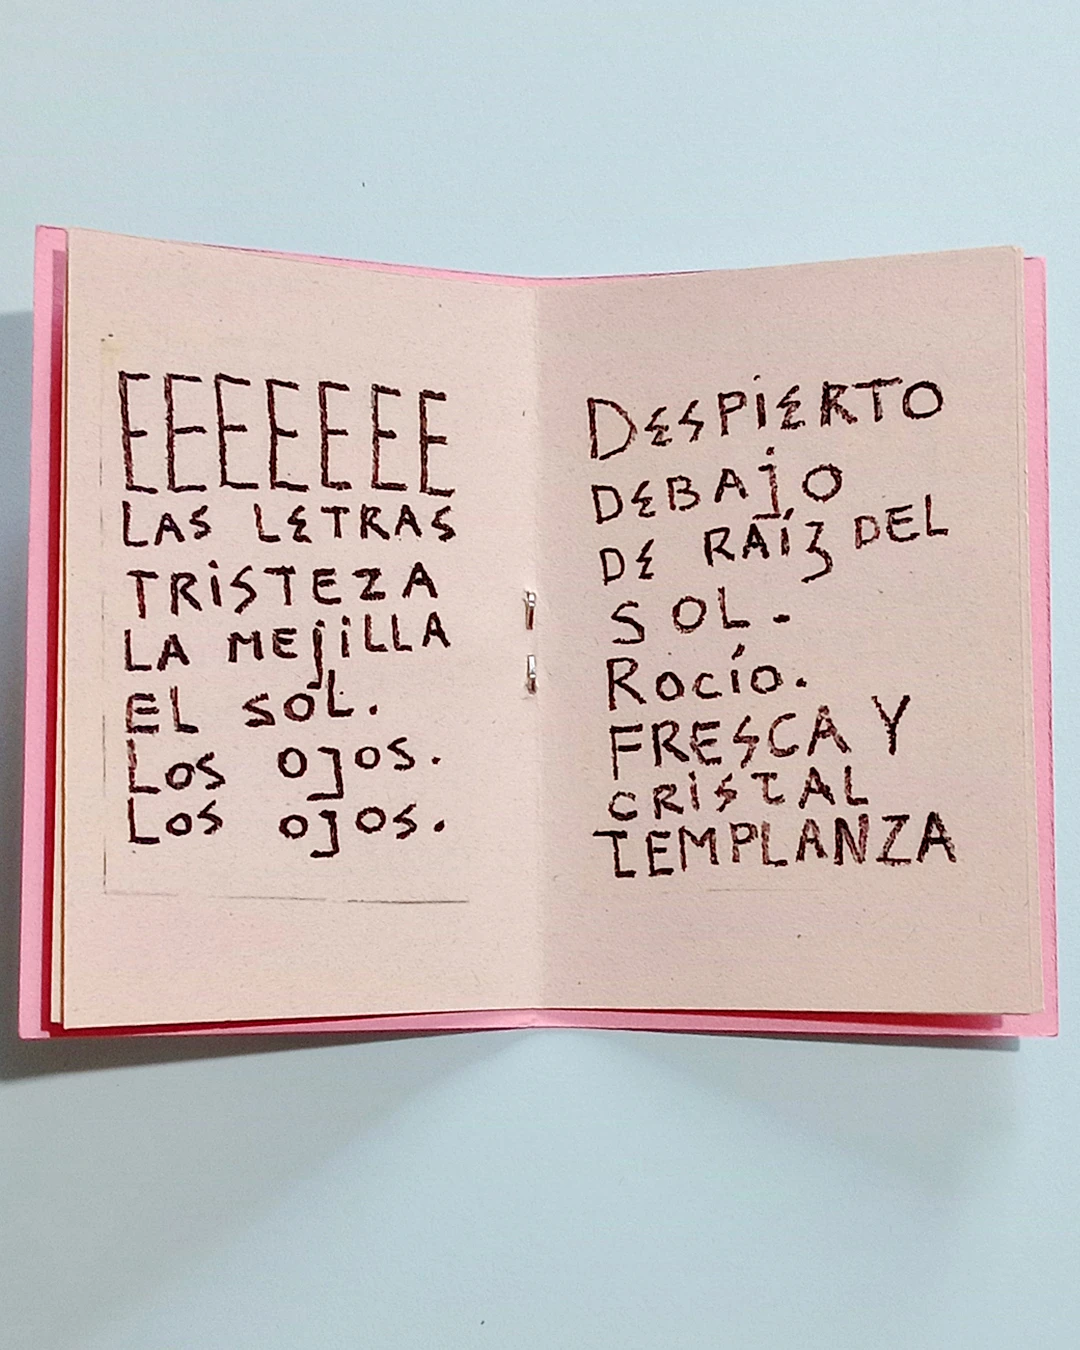 EEEEEEE
LAS LETRAS
TRiSTEZA
LA MEjiLLA
EL SOL.
Los ojos.
Los ojos.
DESPiERTO
DEBAjO
DE RAíz DEL
SOL.
Rocío.
FRESCA Y
CRiSTAL
TEMPLANZA